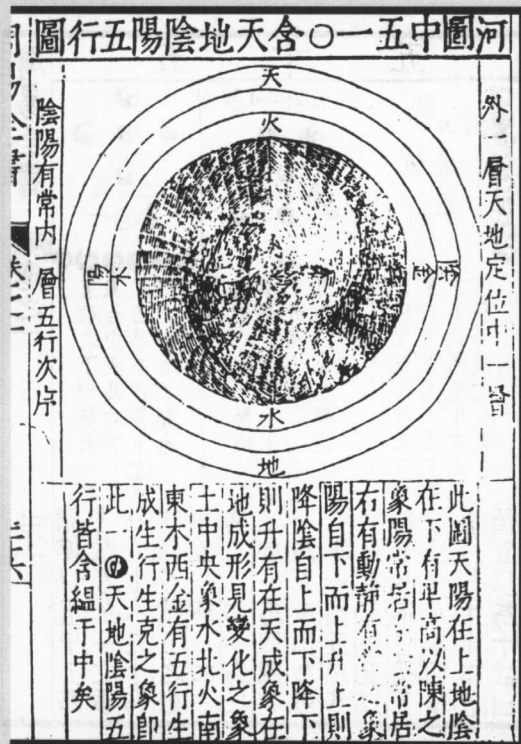 河圖中五一○含天地陰陽五行圖
外一層天地定位中一層
天
火
陽
木
金
陰
水
地
陰陽有常內一層五行次序
此圖天陽在上地陰
在下有卑高以陳之
象陽常居常居
右有動靜有象
陽自下而上升上則
降陰自上而下降下
則升有在天成象在
地成形見變化之象
土中央象水北火南
東木西金有五行生
成生行生克之象卽
此天地陰陽五
行皆含縕于中矣